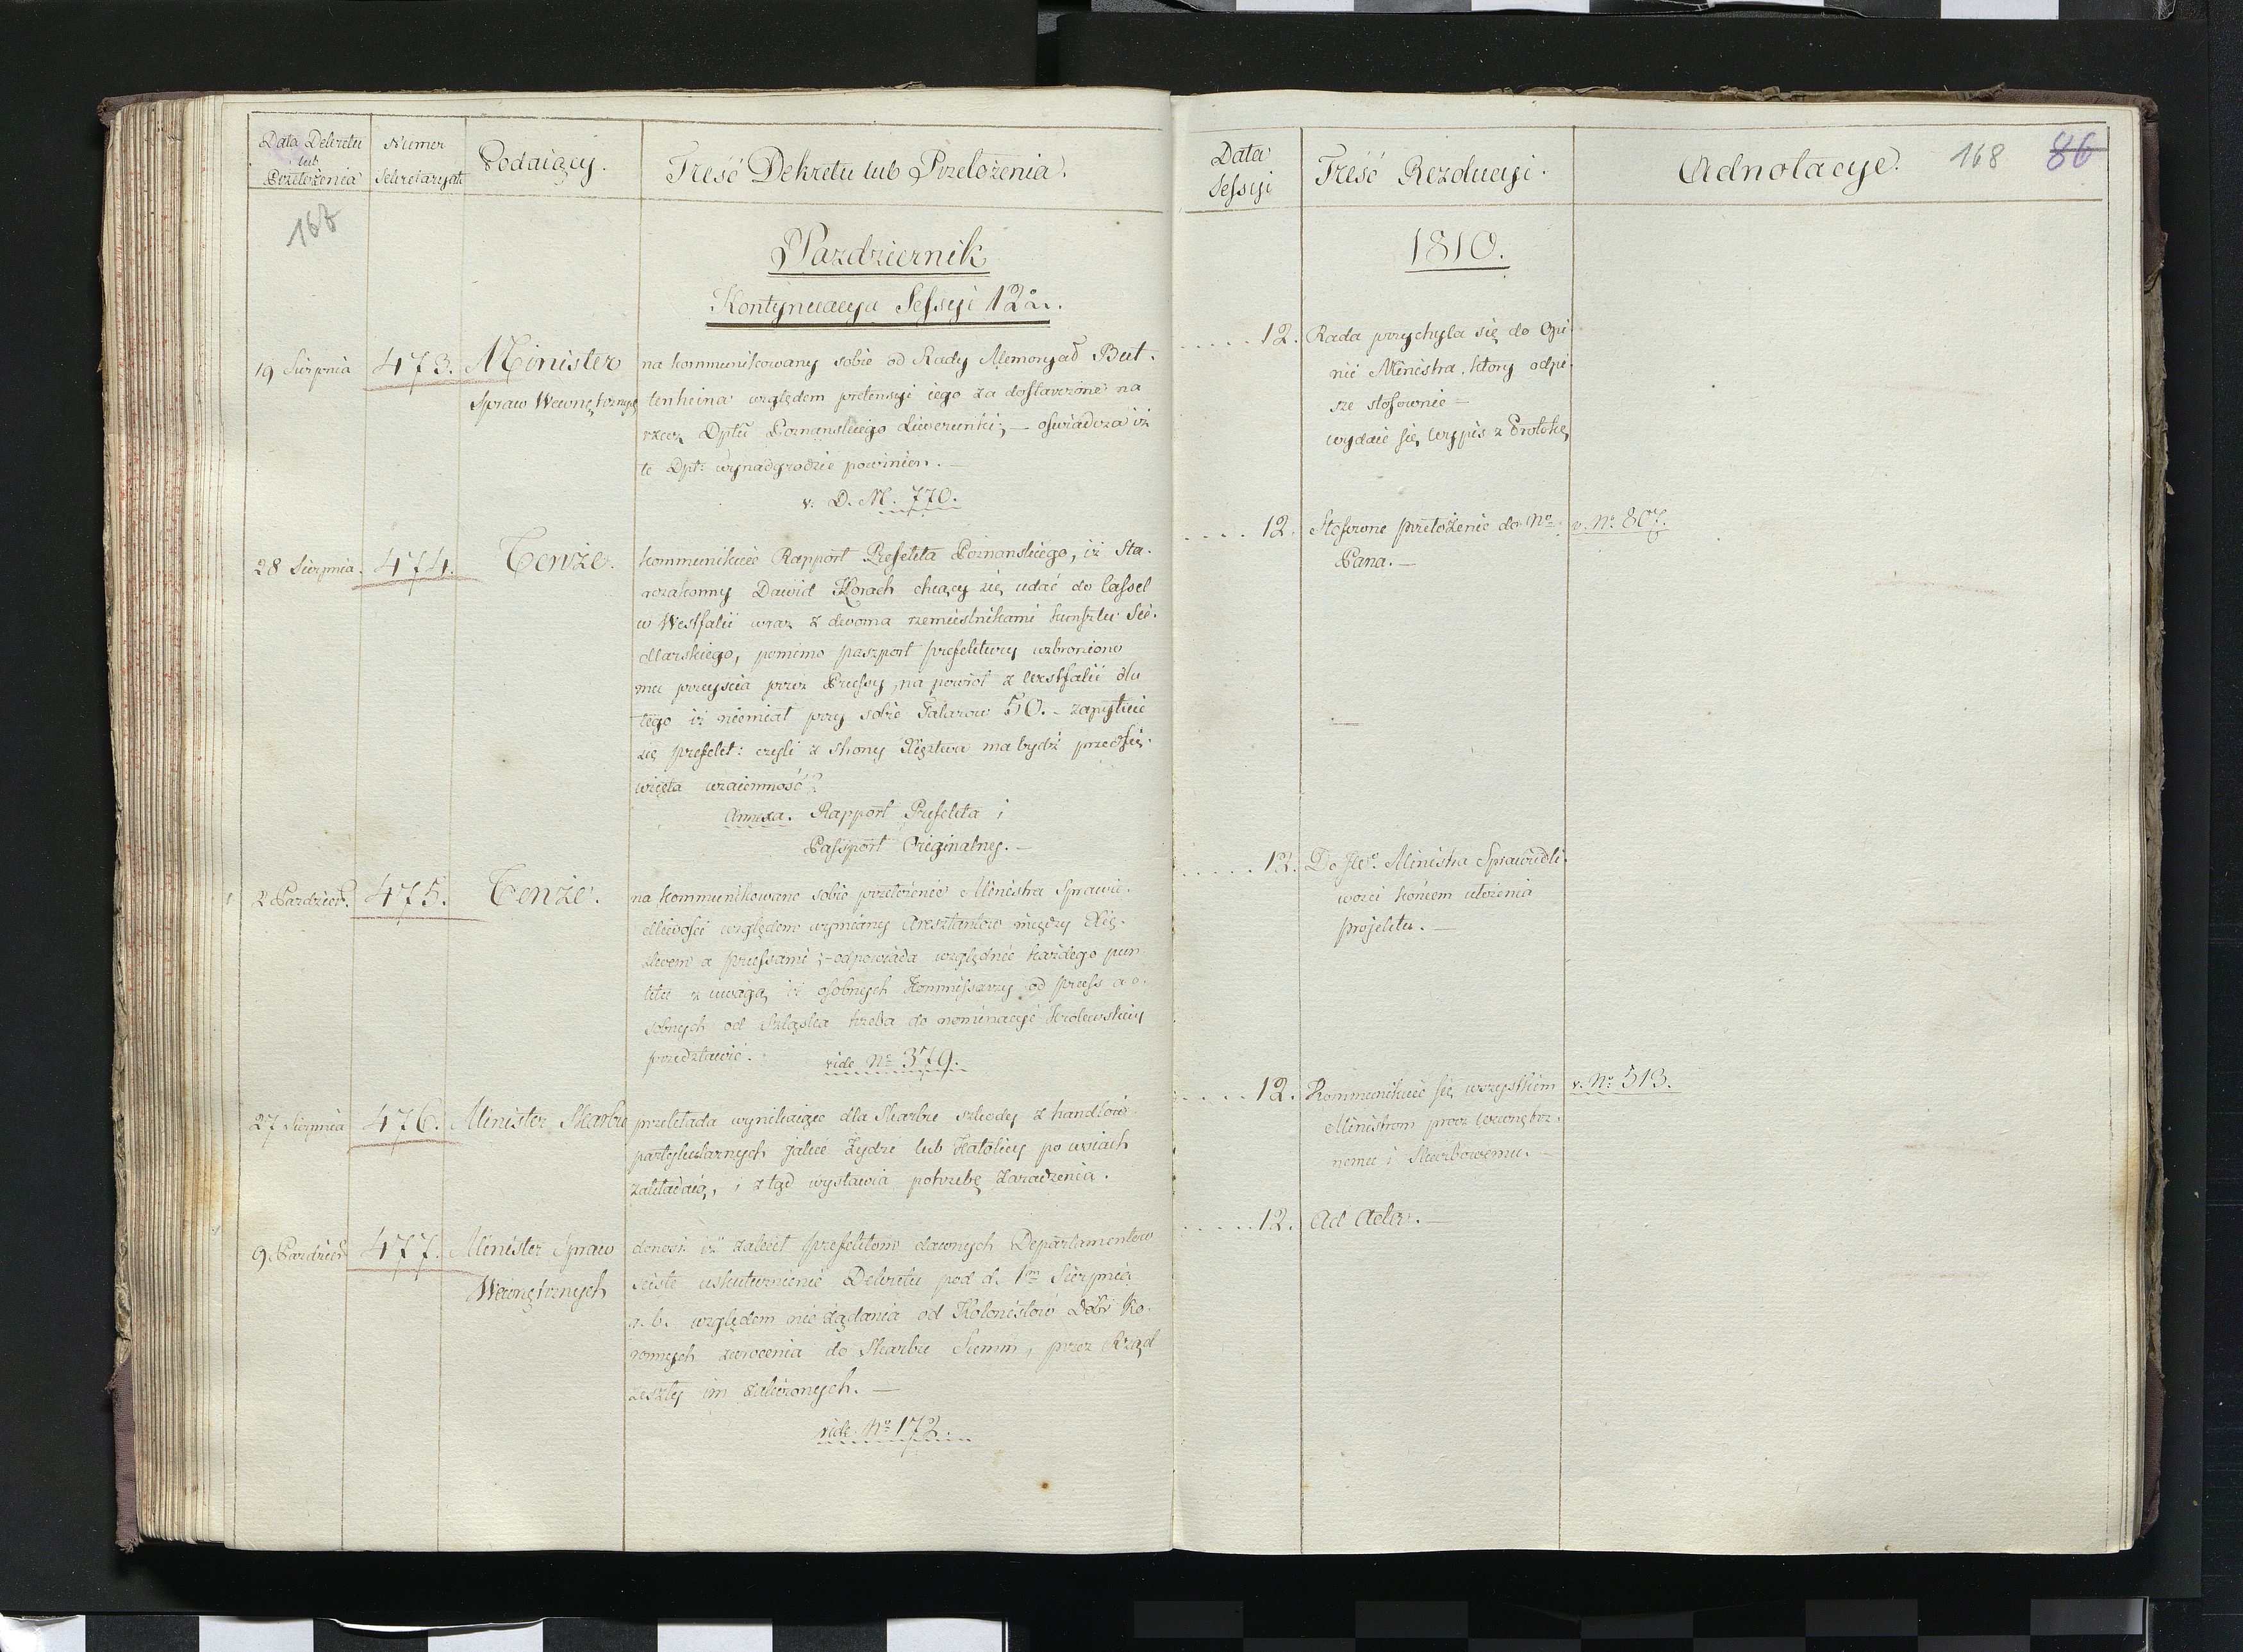 Data Dekretu
lub
Przełożenia
Numer
Sekretaryatu
Podaiący.
Treść Dekretu lub Przełożenia.
167
Pazdziernik
Kontynuacya Sessyi 12.
19 Sierpnia
473.
Minister
Spraw Wewnętrznych
na kommunikowany sobie od Rady Memoryał But-
tenheina względem pretensyi iego za dostarczone na
rzecz Dptu Poznanskiego Liwerunki; — oswiadcza iż
te Dpt: wynadgrodzic powinien. —
v. D. M. 770.
28 Sierpnia.
474.
Tenże.
kommunikuie Rapport Prefekta Poznanskiego, iż Sta-
rozakonny Dawid Korach chcący się udać do Cassel
w Westfalii wraz z dwoma rzemieslnikami kunsztu Sio-
dlarskiego, pomimo paszport prefektury wzbroniono
mu przeyscia przez Prussy, na powrot z Westfalii dla
tego iż niemiał przy sobie Talarow 50. – zapytuie
się prefekt: czyli z strony Xięztwa ma bydź przedsię-
wzięta wzaiemność?
Annexa. Rapport Prefekta i
Passport Originalny. —
2 Pazdzier.
475.
Tenże.
na kommunikowane sobie przełożenie Ministra Sprawie-
dliwości względem wymiany Aresztantow między Xię-
ztwem a prussami; – odpowiada względnie każdego pun
ktu z uwagą iż osobnych Kommissarzy od pruss a o-
sobnych od Szląska trzeba do nominacyi Krolewskiey
przedstawić.
vide No 379.
27 Sierpnia
476.
Minister Skarbu
przekłada wynikaiące dla Skarbu szkody z handlow
partykularnych jakie Żydzi lub Katolicy po wsiach
zakładaią, i ztąd wystawia potrzebę zaradzenia.
9. Pazdzier
477.
Minister Spraw
Wewnętrznych
donosi iż zalecił prefektom dawnych Departamentow
scisłe uskutecznienie Dekretu pod d. 1m Sierpnia
r. b. względem nie żądania od Kolonistow Dobr Ko-
ronnych zwrocenia do Skarbu Summ, przez Rząd
zeszły im zaliczonych. —
vide No 172.
Data
Sessyi
Treść Rezolucyi.
Adnotacye.
168
86
1810.
12.
Rada przychyla się do Opi-
nii Ministra, ktory odpi-
sze stosownie —
wydaie się wypis z Protok
12.
Stosowne przełożenie do No
Pana. —
v. No 807.
12.
Do Ministra Sprawiedli-
wosci końcem ułożenia
projektu. —
12.
Kommunikuie się wszystkim
Ministrom procz Wewnętrz-
nemu i Skarbowemu. —
v. No 513.
12.
Ad Acta. —